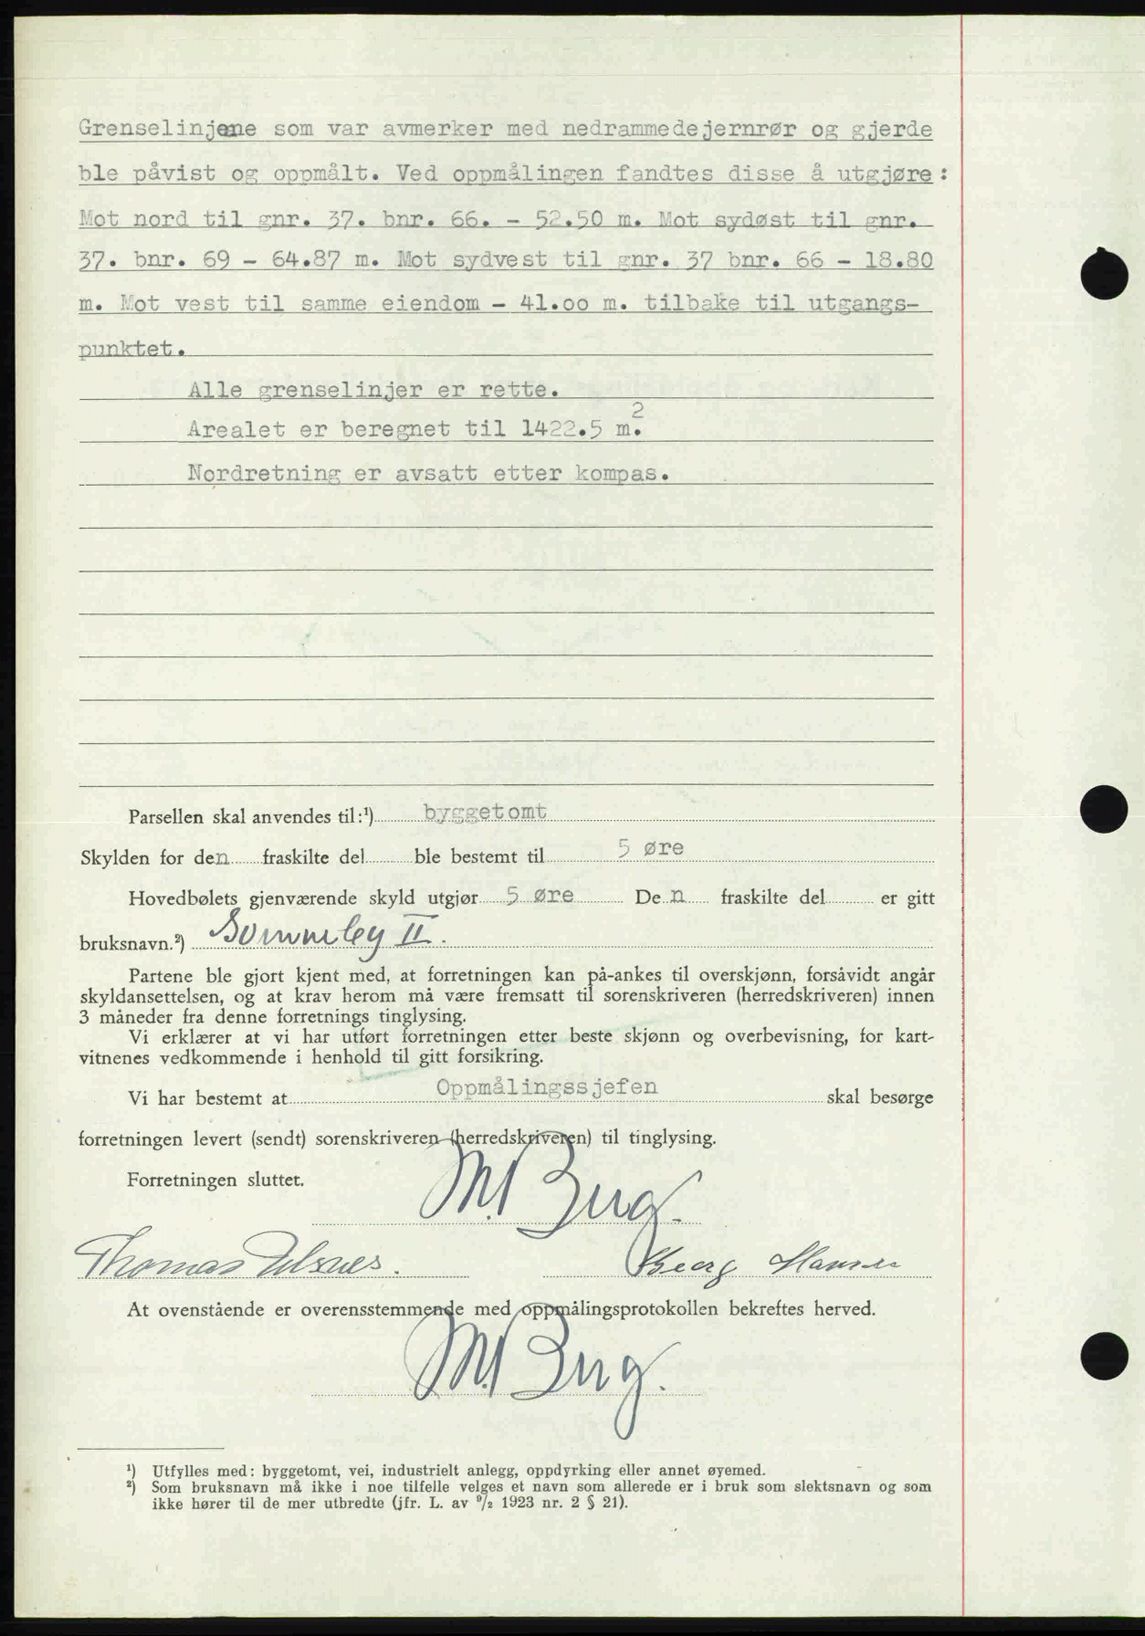 Grenselinjene som var avmerker med nedrammedejernrør og gjerde
ble påvist og oppmålt. Ved oppmålingen fandtes disse å utgjøre:
Mot nord til gnr. 37. bnr. 66. - 52.50 m. Mot sydøst til gnr.
37. bnr. 69 - 64.87 m. Mot sydvest til gnr. 37 bnr. 66 - 18.80
m. Mot vest til samme eiendom - 41.oo m. tilbake til utgangs-
punktet.
Alle grenselinjer er rette.
Arealet er beregnet til 1422.5 m.²
Nordretning er avsatt etter kompas.
Parsellen skal anvendes til:¹) byggetomt
Skylden for den fraskilte del ble bestemt til 5 øre
Hovedbølets gjenværende skyld utgjør 5 øre Den fraskilte del er gitt
bruksnavn.²) II.
Partene ble gjort kjent med, at forretningen kan på-ankes til overskjønn, forsåvidt angår
skyldansettelsen, og at krav herom må være fremsatt til sorenskriveren (herredskriveren) innen
3 måneder fra denne forretnings tinglysing.
Vi erklærer at vi har utført forretningen etter beste skjønn og overbevisning, for kart-
vitnenes vedkommende i henhold til gitt forsikring.
Vi har bestemt at Oppmålingssjefen skal besørge
forretningen levert (sendt) sorenskriveren (herredskriveren) til tinglysing.
Forretningen sluttet.
Thomas Georg Hansen
At ovenstående er overensstemmende med oppmålingsprotokollen bekreftes herved.
¹) Utfylles med: byggetomt, vei, industrielt anlegg, oppdyrking eller annet øyemed.
²) Som bruksnavn må ikke i noe tilfelle velges et navn som allerede er i bruk som slektsnavn og som
ikke hører til de mer utbredte (jfr. L. av ⁹/₂ 1923 nr. 2 § 21).